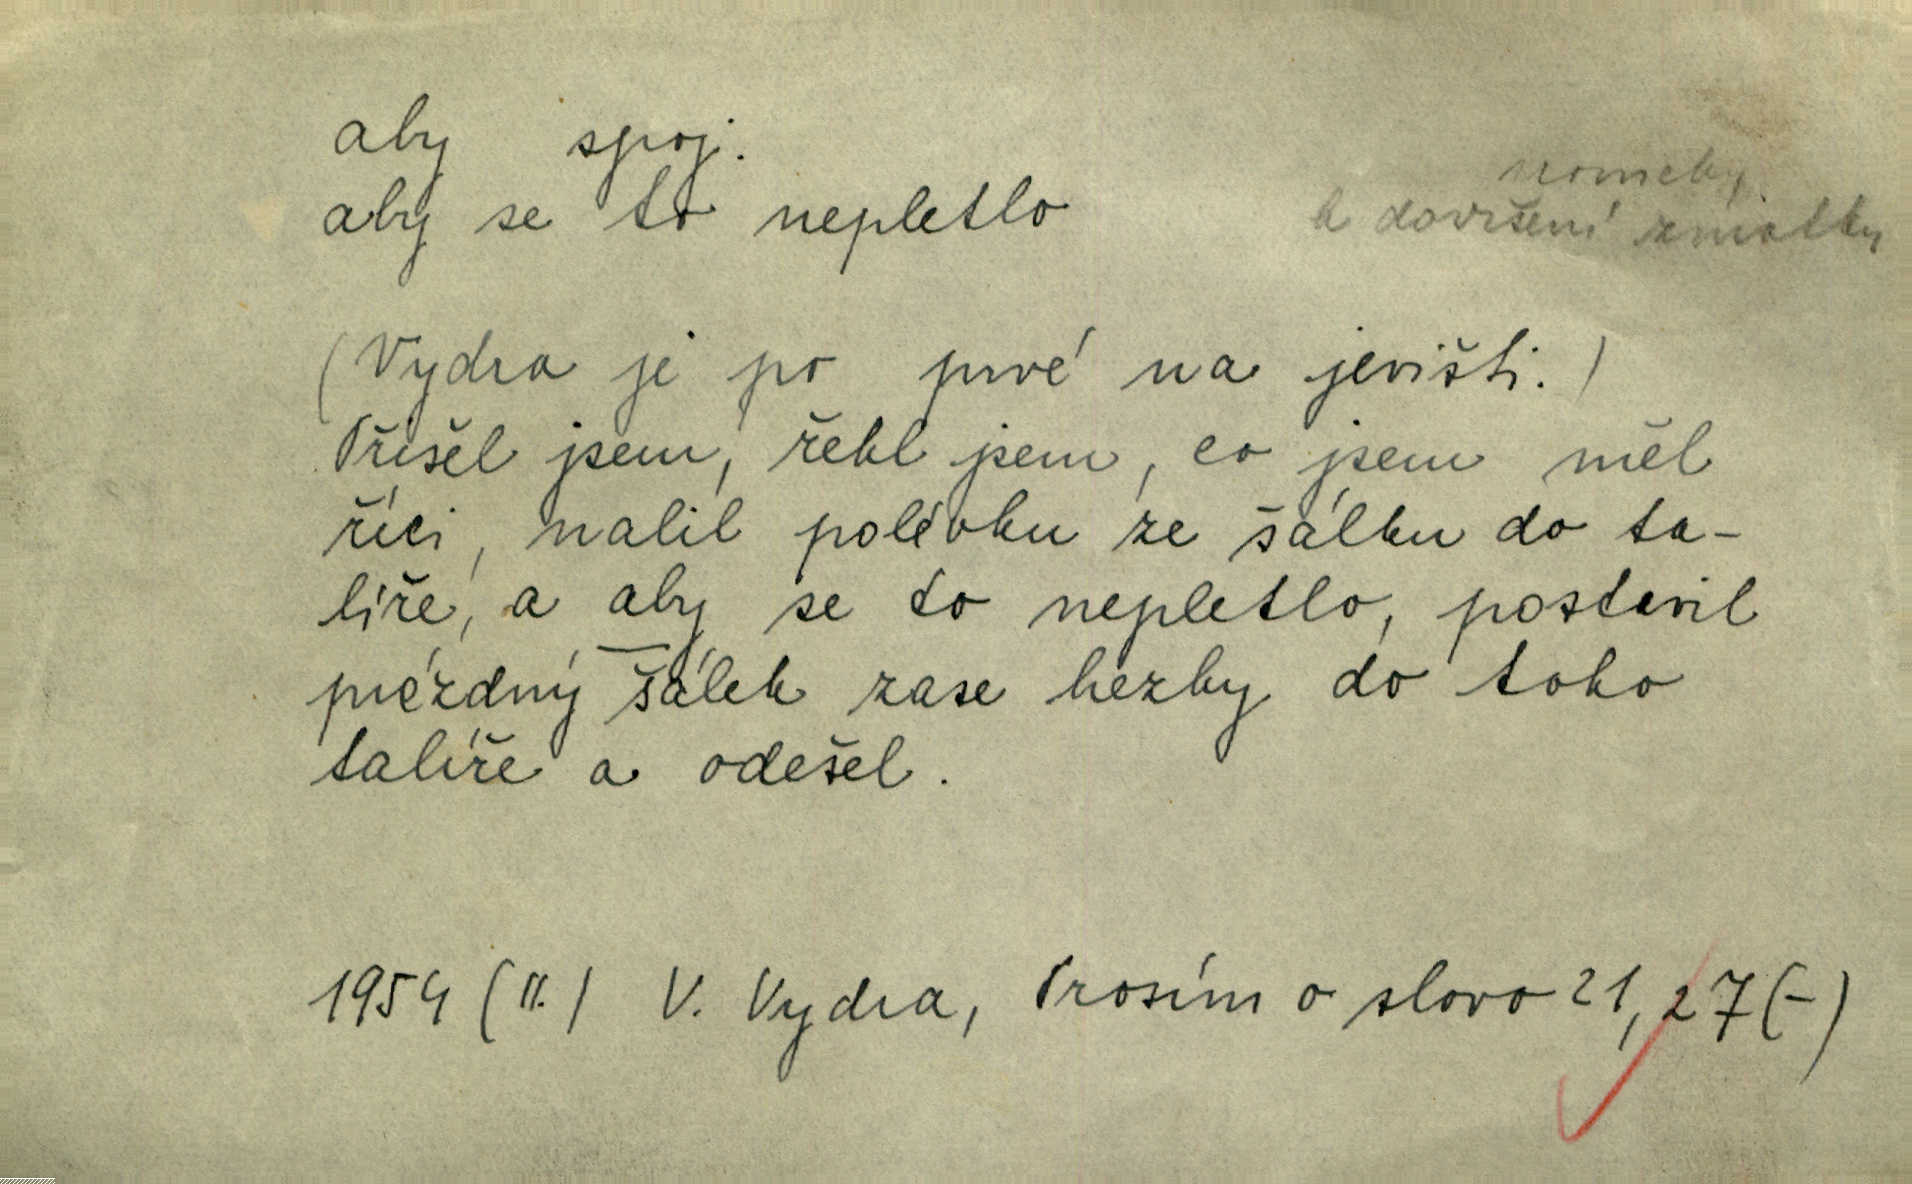 aby spoj.
aby se to nepletlo
k dovršení zmatku
(Vydra je po prvé na jevišti.)
Přišel jsem, řekl jsem, co jsem měl
říci, nalil polévku ze šálku do ta-
líře, a aby se to nepletlo, postavil
prázdný šálek zase hezky do toho
talíře a odešel.
1954 (II.) V. Vydra, Prosím o slovo 21, 27 (-)